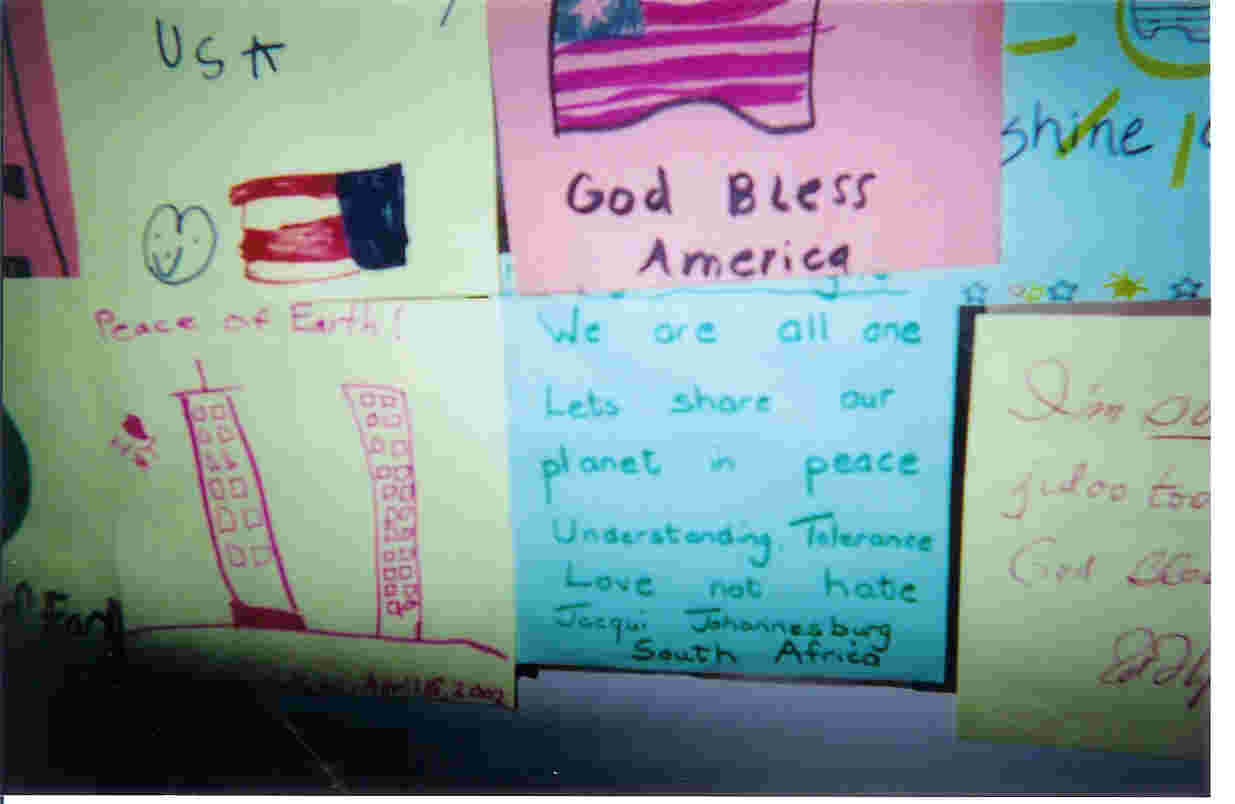 USA
God Bless
America
shine
Peace of Earth!
We are all one
Lets share our
planet in peace
Understanding, Tolerance
Love not hate
Jacqui Johannesburg
South Africa
April 2002
I'm
too
God